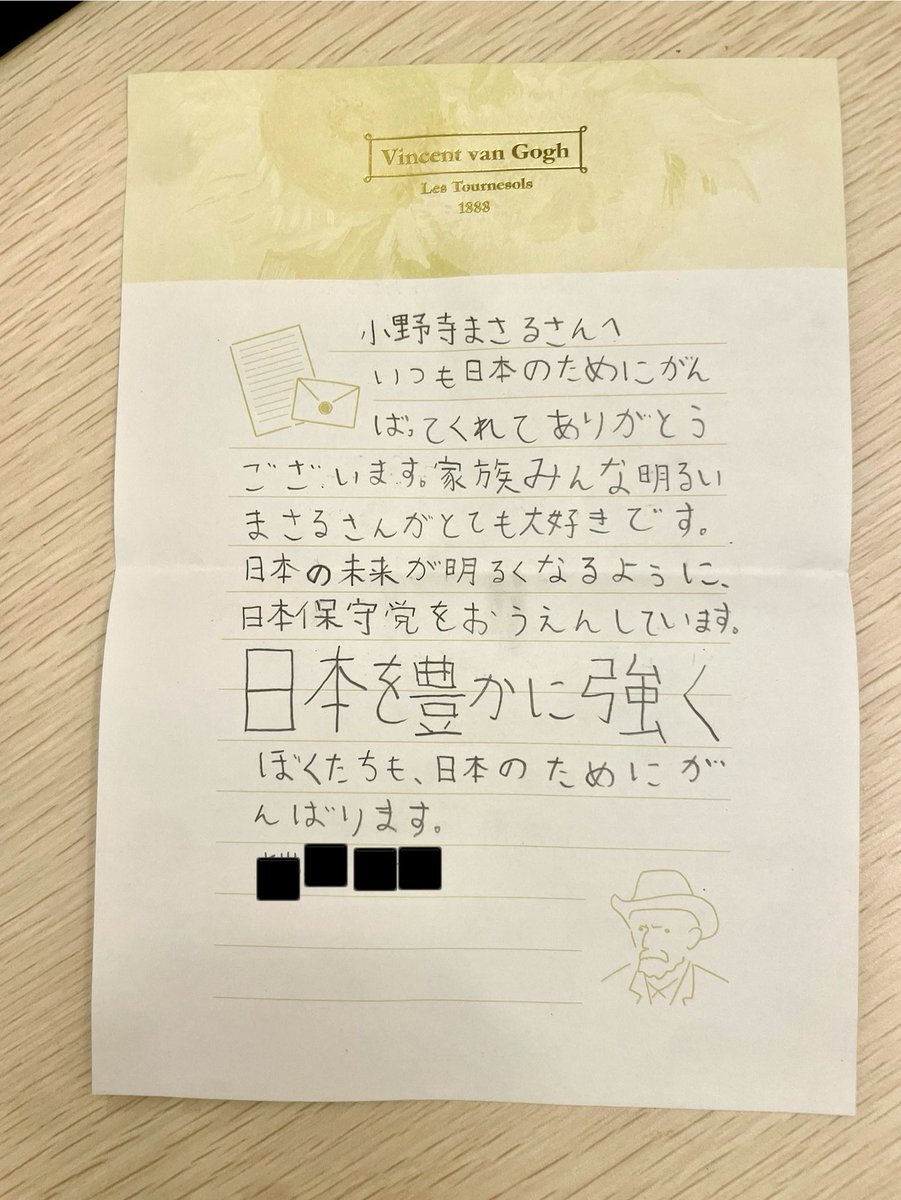 Vincent van Gogh
Les Tournesols
1888
小野寺まさるさんへ
いつも日本のためにがん
ばってくれてありがとう
ございます。家族みんな明るい
まさるさんがとても大好きです。
日本の未来が明るくなるように、
日本保守党をおうえんしています。
日本を豊かに強く
ぼくたちも、日本のためにが
んばります。